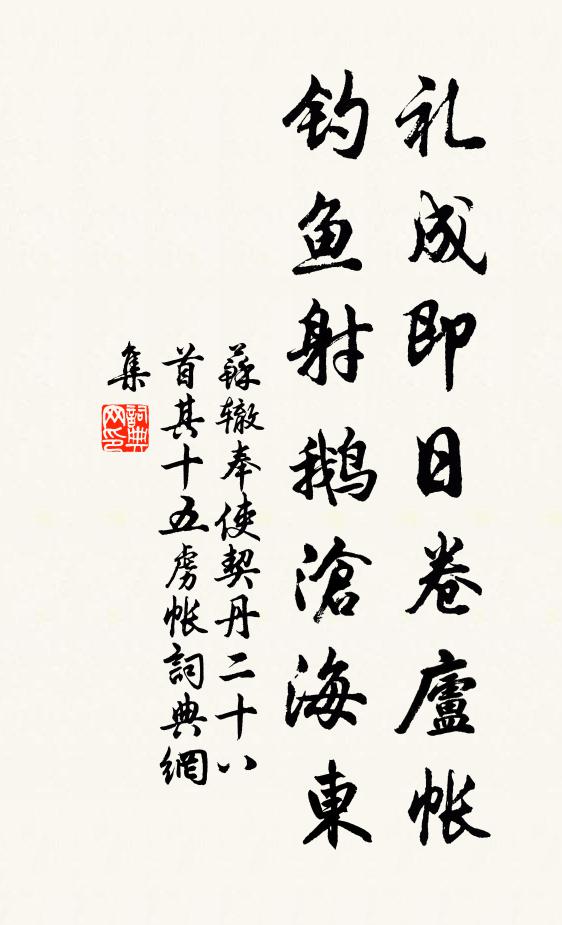 礼成即日卷廬帐
钓鱼射鹅滄海東
蘇辙奉使契丹二十八
首其十五虏帐詞典網
集
詞典
网印